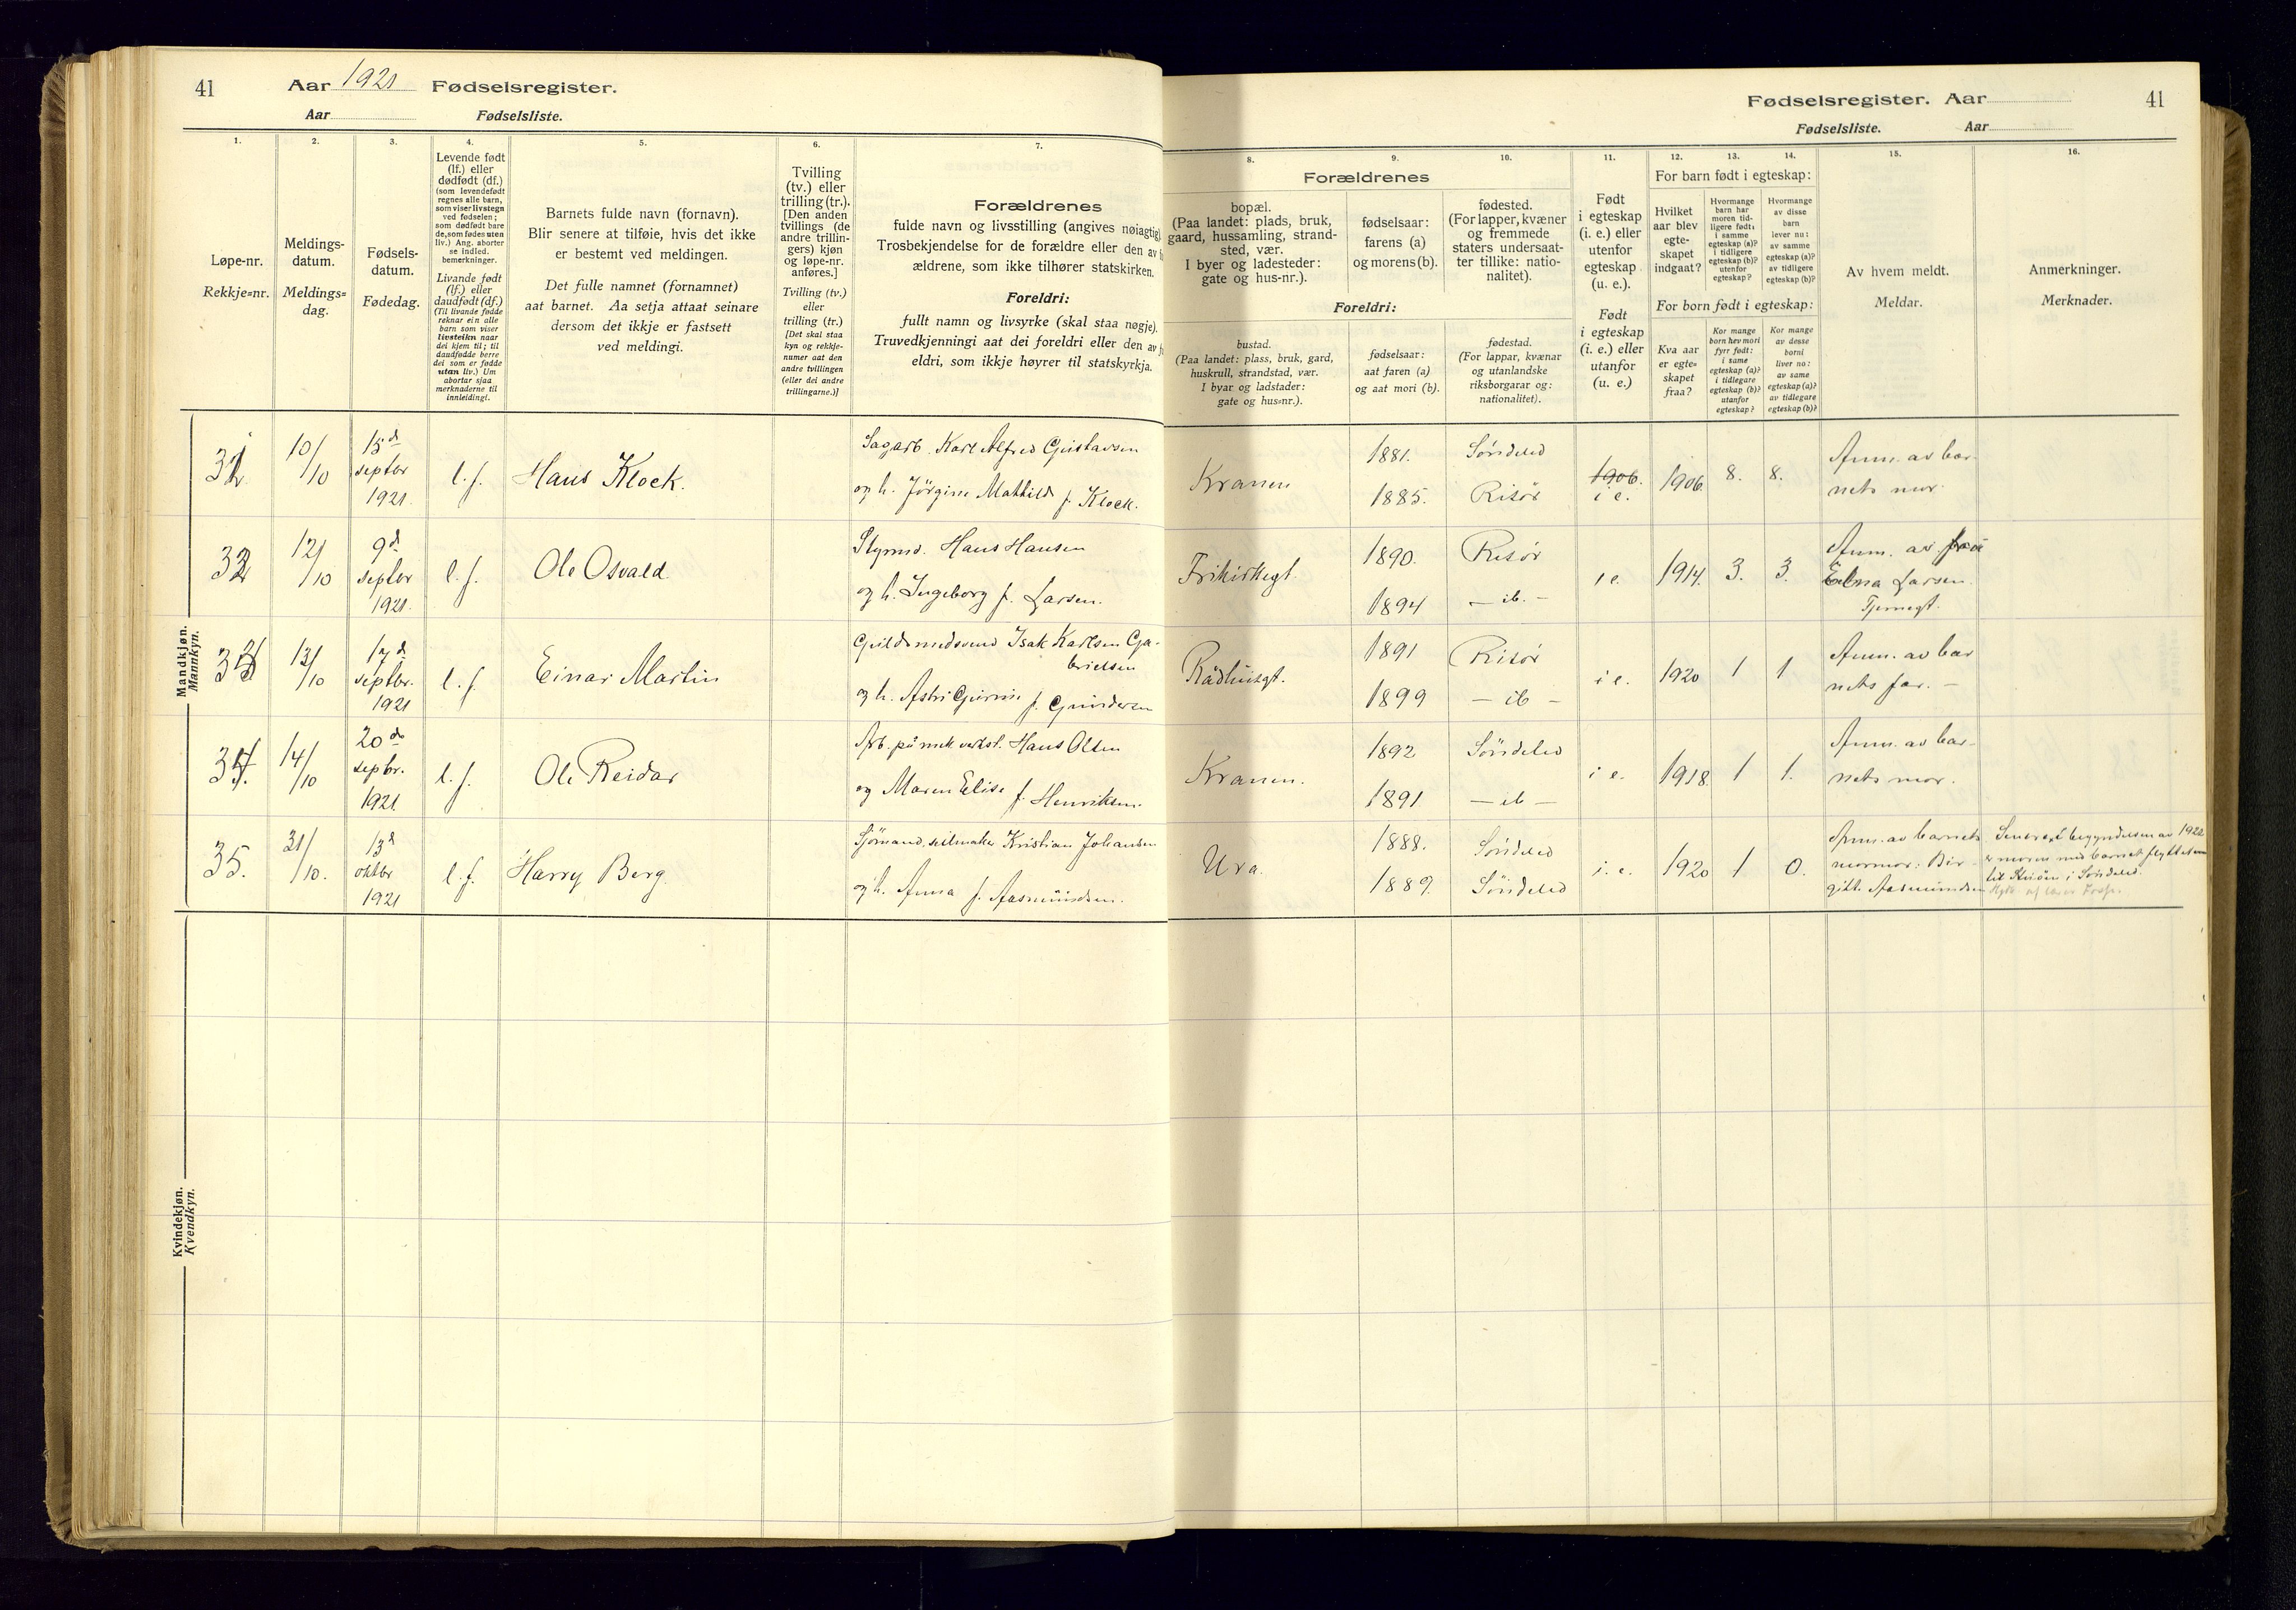 41
Aar 1921 Fødselsregister.
Aar Fødselsliste.
Fødselsregister. Aar
41
Fødselsliste. Aar
1.
2.
3.
4.
5.
6.
7.
8.
9.
10.
11.
12.
13.
14.
15.
16.
Løpe-nr.
Rekkje=nr.
Meldings-
datum.
Meldings=
dag.
Fødsels-
datum.
Fødedag.
Levende født
(lf.) eller
dødfødt (df.)
(som levendefødt
regnes alle barn,
som viser livstegn
ved fødselen;
som dødfødt bare
de, som fødes uten
liv.) Ang. aborter
se indled.
bemerkninger.
Livande født
(lf.) eller
daudfødt (df.)
(Til livande fødde
reknar ein alle
barn som viser
livsteikn naar
dei kjem til; til
daudfødde berre
dei som er fødde
utan liv.) Um
abortar sjaa
merknaderne til
innleidingi.
Barnets fulde navn (fornavn).
Blir senere at tilføie, hvis det ikke
er bestemt ved meldingen.
Det fulle namnet (fornamnet)
aat barnet. Aa setja attaat seinare
dersom det ikkje er fastsett
ved meldingi.
Tvilling
(tv.) eller
trilling (tr.).
[Den anden
tvillings (de
andre trillin-
gers) kjøn
og løpe-nr.
anføres.]
Tvilling (tv.)
eller
trilling (tr.)
[Det skal staa
kyn og rekkje-
numer aat den
andre tvillingen
(eller dei andre
trillingarne.)]
Forældrenes
fulde navn og livsstilling (angives nøiagtig)
Trosbekjendelse for de forældre eller den av
ældrene, som ikke tilhører statskirken.
Foreldri:
fullt namn og livsyrke (skal staa nøgje).
Truvedkjenningi aat dei foreldri eller den av
eldri, som ikkje høyrer til statskyrkja.
Forældrenes
bopæl.
(Paa landet: plads, bruk,
gaard, hussamling, strand-
sted, vær.
I byer og ladesteder:
gate og hus-nr.).
fødselsaar:
farens (a)
og morens (b).
fødested.
(For lapper, kvæner
og fremmede
staters undersaat-
ter tillike: natio-
nalitet).
Foreldri:
bustad.
(Paa landet: plass, bruk, gard,
huskrull, strandstad, vær.
I byar og ladstader:
gate og hus=nr.).
fødselsaar:
aat faren (a)
og aat mori (b).
fødestad.
(For lappar, kvænar
og utanlandske
riksborgarar og:
nationalitet).
Født
i egteskap
(i. e.) eller
utenfor
egteskap
(u. e.).
Født
i egteskap
(i. e.) eller
utanfor
(u. e.)
For barn født i egteskap:
Hvilket
aar blev
egte-
skapet
indgaat?
Hvormange
barn har
moren tid-
ligere født:
i samme
egteskap (a)?
i tidligere
egteskap (b)?
utenfor
egteskap?
Hvormange
av disse
barn
lever nu:
av samme
egteskap (a)?
av tidligere
egteskap (b)?
For born født i egteskap:
Kva aar
er egte=
skapet
fraa?
Kor mange
born hev mori
fyrr født:
i same
egteskap (a)?
i tidlegare
egteskap (b)?
utanfor
egteskap?
Kor mange
av desse
borni
liver no:
av same
egteskap (a)?
av tidlegare
egteskap (b)?
Av hvem meldt.
Meldar.
Anmerkninger.
Merknader.
Mandkjøn.
Mannkyn.
31
10/10
15d septbr 1921.
l. f.
Hans Klock.
Sagarb. Karl Alfred Gustavsen
og h. Jørgine Mathilde f. Klock.
Kranen
1881.
1885.
Søndeled
Risør
1906.
i e.
1906.
8.
8.
Anm. av bar-
nets mor.
32
12/10
9d septbr 1921.
l. f.
Ole Osvald.
Styrmd. Hans Hansen
og h. Ingeborg f. Larsen.
Frikirkegt.
1890.
1894
Risør
— ib. —
i e.
1914.
3.
3.
Anm. av frøk
Elna Larsen.
Tjernegt.
33
13/10
17d septbr. 1921
l. f.
Einar Martin
Guldsmedsvend Isak Karlsen Ga-
brielsen
og h. Astri Gurine f. Gundersen
Rådhusgt.
1891
1899
Risør
— ib —
i e.
1920
1
1
Anm. av bar
nets far. —
34.
14/10
20de septbr. 1921
l. f.
Ole Reidar
Arb. på mek verkst. Hans Olsen
og Maren Elise f. Henriksen.
Kranen.
1892
1891
Søndeled
— ib —
i e.
1918.
1
1.
Anm. av bar-
nets mor.
35.
31/10.
13d oktbr 1921
l. f.
Harry Berg.
Sjømand, seilmaker Kristian Johansen
og h. Anna f. Aasmundsen.
Ura.
1888.
1889.
Søndeled
Søndeled
i. e.
1920
1
0.
Anm. av barnets
mormor: Bir-
gitte Aasmundsen
Senere, i begyndelsen av 1922
er moren med barnet flyttet
til i Søndeled.
Kvindekjøn.
Kvendkyn.